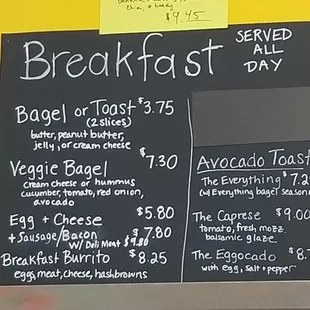 $9.45
Breakfast
SERVED
ALL
DAY
Bagel or Toast $3.75
(2 slices)
butter, peanut butter,
jelly, or cream cheese
Veggie Bagel $7.30
cream cheese or hummus
cucumber, tomato, red onion,
avocado
Egg + Cheese $5.80
+ Sausage/Bacon $7.80
w/ Deli Meat $9.80
Breakfast Burrito $8.25
eggs, meat, cheese, hashbrowns
Avocado Toast
The Everything $7.2
(w/ Everything bagel season
The Caprese $9.00
tomato, fresh mozz
balsamic glaze
The Eggocado $8.7
with egg, salt + pepper